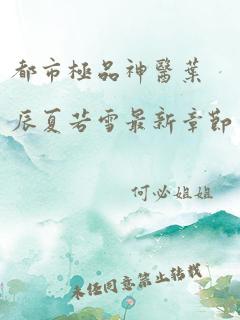 都市極品神醫葉
辰夏若雪最新章節
何必姐姐
未经同意禁止转载